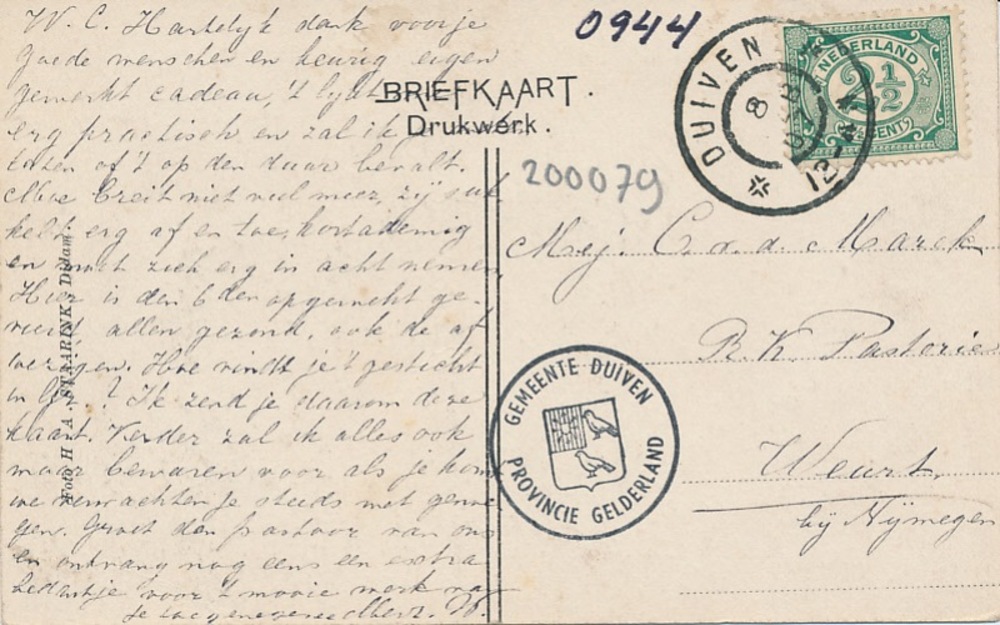 W. C. Hartelijk dank voor je
goede menschen en keurig eigen
gemerkt cadeau, 't lijkt
erg practisch en zal ik je
laten of 't op den duur bevalt.
Moe breit niet veel meer, zij suk
kelt erg af en toe, kortademig
en moet zich erg in acht nemen.
Hier is den 6den opgewekt ge-
vierd allen gezond, ook de af
wezigen. Hoe vindt je 't gesticht
in ? Ik zend je daarom deze
kaart. Verder zal ik alles ook
maar bewaren voor als je komt
we verwachten je steeds met genoe
gen. Groet den pastoor van ons
en ontvang nog eens een extra
bedankje voor 't mooie werk van
je toegenegen
Foto H. A. STAARINK, Didam.
BRIEFKAART.
Drukwerk.
0944
200079
DUIVEN
8
12-4
NEDERLAND
2½
CENT
Mej. C. v. d. Marck
R. K. Pastorie
Weurt
bij Nijmegen
GEMEENTE DUIVEN
PROVINCIE GELDERLAND